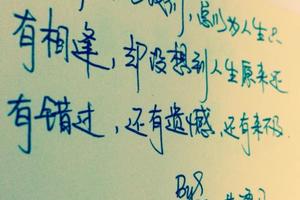 别，总以为人生只
有相逢，却没想到人生原来还
有错过，还有遗憾，还有来不及.
By8